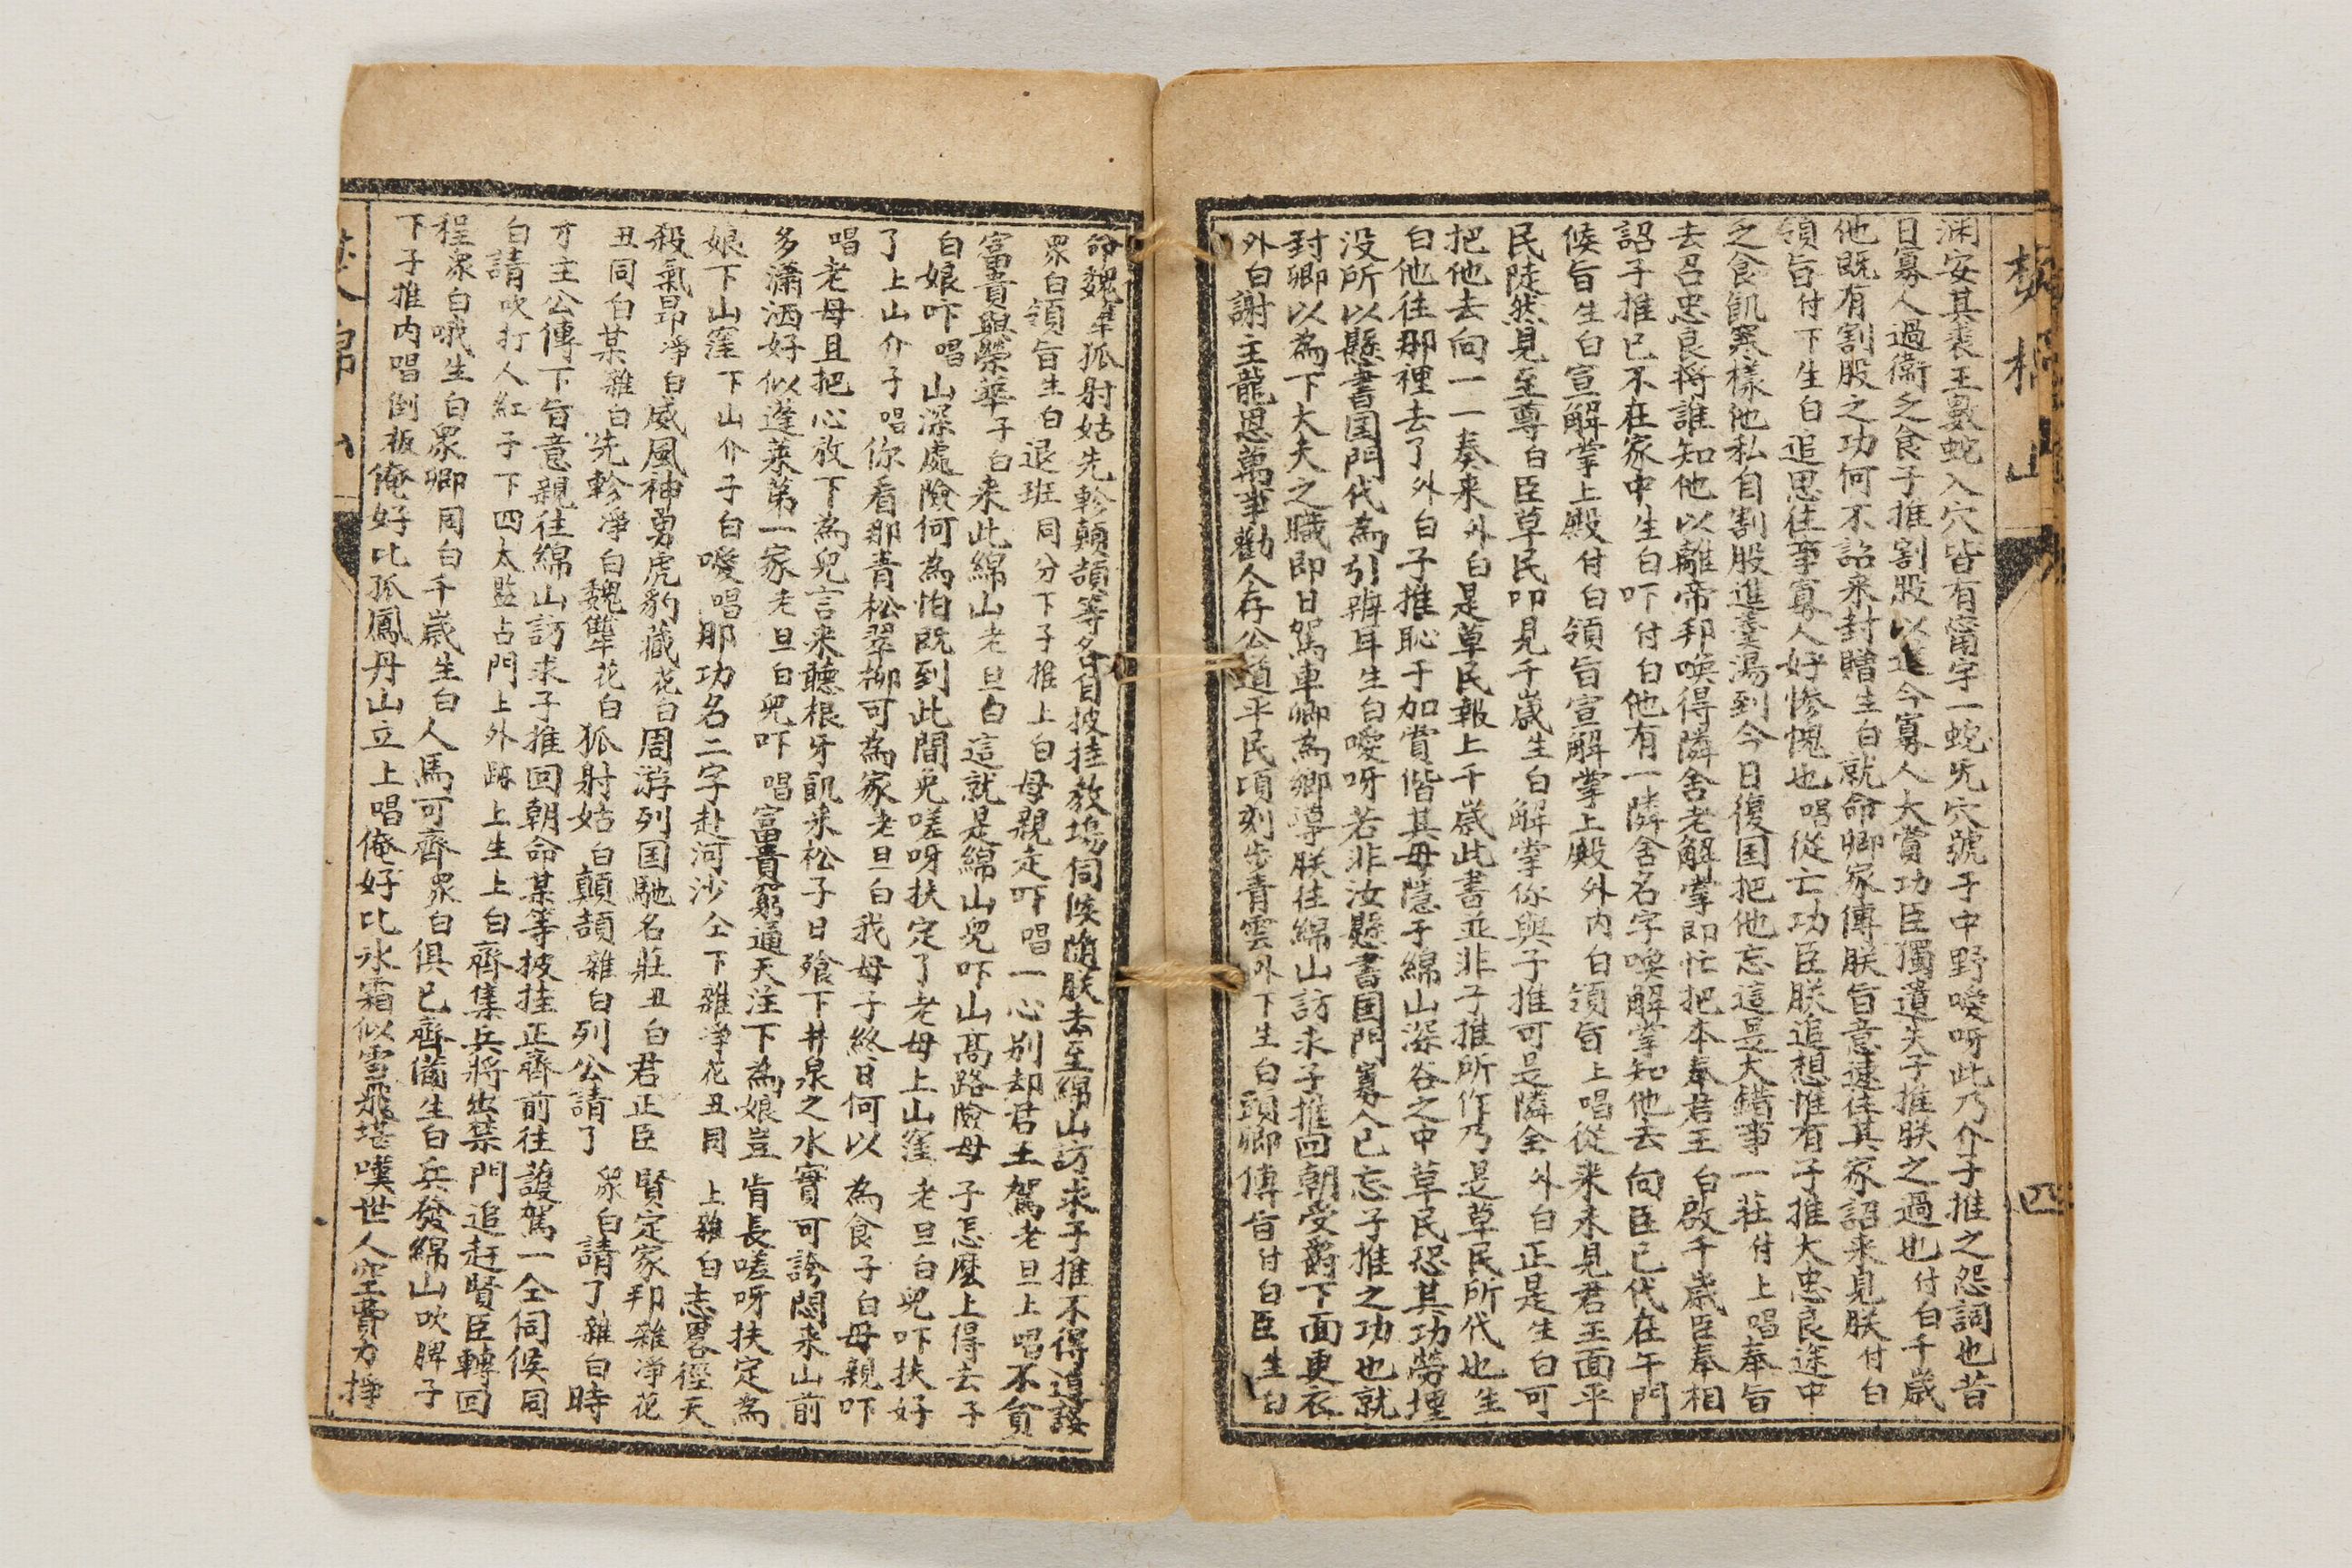 渊安其襄王數蛇入穴皆有甯宇一蛇旡穴號于中野嗳呀此乃介子推之怨詞也昔
日寡人過衞乏食子推割股以進今寡人大賞功臣獨遺失子推朕之過也付白千歲
他既有割股之功何不詔来封贈生白就命卿家傳朕旨意速往其家詔来見朕付白
領旨付下生白追思往事寡人好惨愧也唱從亡功臣朕追想惟有子推大忠良途中
乏食飢寒樣他私自割股進羹湯到今日復囯把他忘這是大錯事一莊付上唱奉旨
去召忠良将誰知他以離帝邦喚得隣舍老解掌即忙把本奉君王白啟千歲臣奉相
詔子推已不在家中生白吓付白他有一隣舍名字喚解掌知他去向臣已代在午門
候旨生白宣解掌上殿付白領旨宣解掌上殿外内白領旨上唱從来未見君王面平
民陡然見至尊白臣草民叩見千歲生白解掌你與子推可是隣舍外白正是生白可
把他去向一一奏来外白是草民報上千歲此書並非子推所作乃是草民所代也生
白他往那裡去了外白子推恥于加賞偕其母隱于綿山深谷之中草民恐其功勞埋
没所以懸書囯門代為引辨耳生白嗳呀若非汝懸書囯門寡人已忘子推之功也就
封卿以為下大夫之職即日駕車卿為鄉導朕往綿山訪求子推回朝受爵下面更衣
外白謝主龍恩萬事勸人存公道平民頃刻步青雲外下生白頭卿傳旨付白臣生白
命魏犨狐射姑先軫顛頡等各自披挂教塲伺候随朕去至綿山訪求子推不得追誤
衆白領旨生白退班同分下子推上白母親走吓唱一心别却君王駕老旦上唱不貪
富貴與榮華子白来此綿山老旦白這就是綿山兒吓山髙路險母子怎麼上得去子
白娘吓唱山深處險何為怕既到此間免嗟呀扶定了老母上山窪老旦白兒吓扶好
了上山介子唱你看那青松翠柳可為家老旦白我母子終日何以為食子白母親吓
唱老母且把心放下為兒言来聽根牙飢来松子日飱下井泉之水實可誇悶来山前
多瀟洒好似逢莱第一家老旦白兒吓唱富貴窮通天注下為娘豈肯長嗟呀扶定為
娘下山窪下山介子白嗳唱那功名二字赴河沙仝下雜凈花丑同上雜白志畧徑天
殺氣昂凈白威風神勇虎豹藏花白周游列囯馳名莊丑白君正臣賢定家邦雜凈花
丑同白某雜白先軫凈白魏犨花白狐射姑白顛頡雜白列公請了衆白請了雜白時
才主公傳下旨意親往綿山訪求子推回朝命某等披挂正齊前往護駕一仝伺候同
白請吹打人紅子下四太監占門上外跡上生上白齊集兵將出禁門追赶賢臣轉回
程衆白哦生白衆卿同白千歲生白人馬可齊衆白俱已齊備生白兵發綿山吹脾子
下子推内唱倒板俺好比孤鳳丹山立上唱俺好比氷霜似雪飛堪嘆世人空費力掙